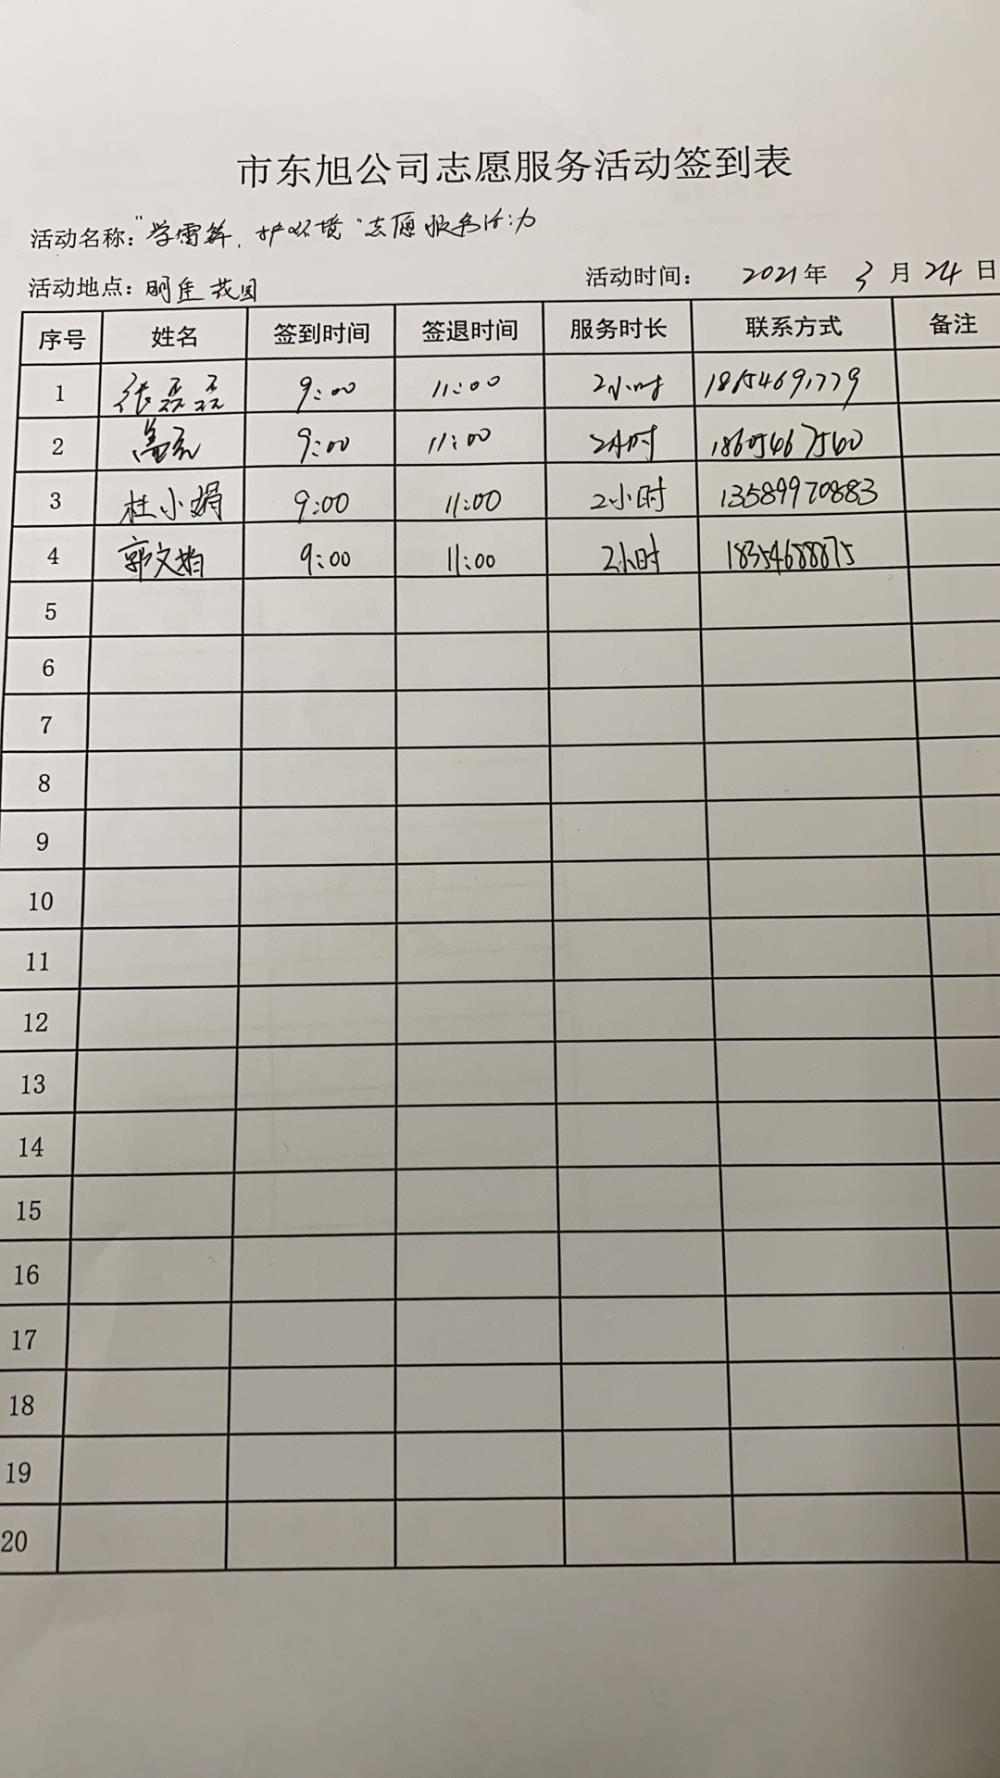 市东旭公司志愿服务活动签到表
活动名称："学雷锋，护环境"志愿服务活动
活动地点：明佳花园 活动时间： 2021年 3月24日
序号 姓名 签到时间 签退时间 服务时长 联系方式 备注
1 张磊磊 9:00 11:00 2小时 18154691779
2 9:00 11:00 2小时 18605467560
3 杜小娟 9:00 11:00 2小时 13589970883
4 郭文娟 9:00 11:00 2小时 18354688875
5
6
7
8
9
10
11
12
13
14
15
16
17
18
19
20